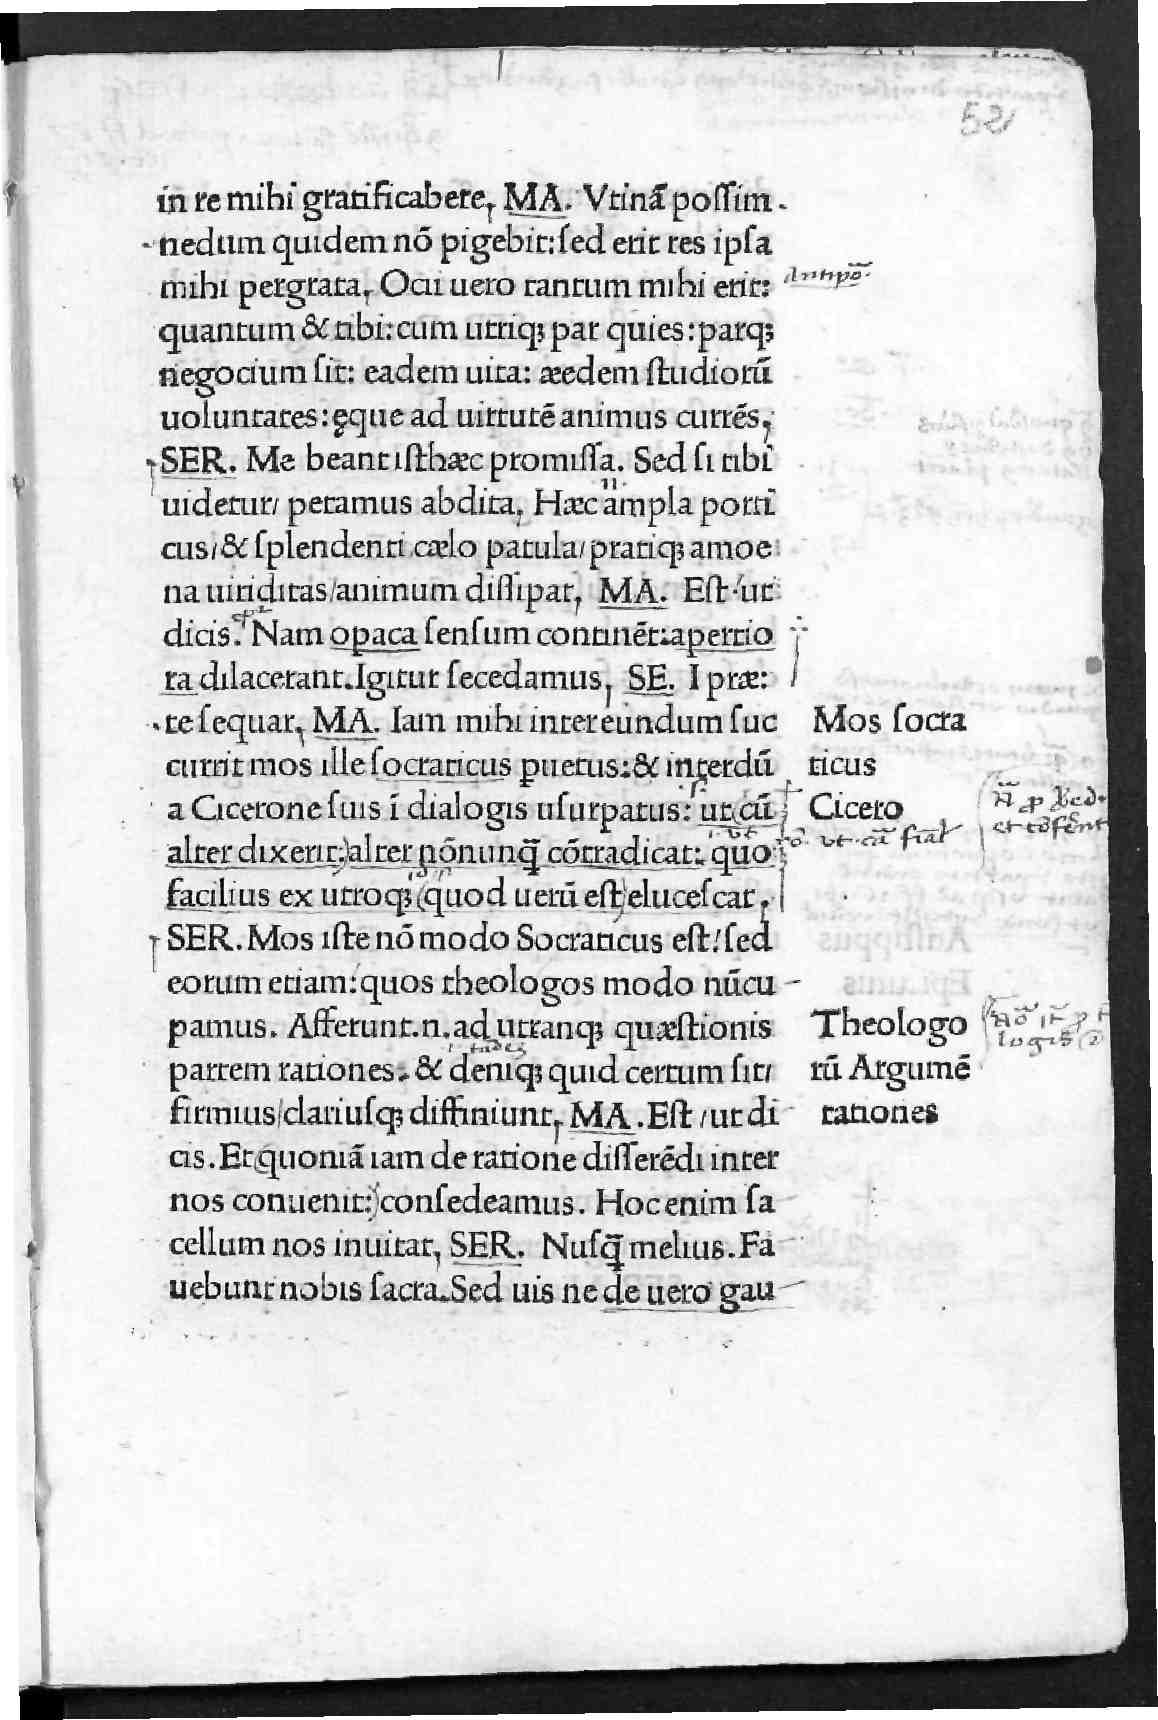 52
in re mihi gratificabere, MA. Vtinã poſſim.
nedum quidem nõ pigebit: ſed erit res ipſa
mihi pergrata, Ocii uero tantum mihi erit:
quantum & tibi: cum utriq; par quies: parq;
negocium ſit: eadem uita: æedem ſtudiorũ
uoluntates: ęque ad uirtutẽ animus currẽs,
SER. Me beant iſthæc promiſſa. Sed ſi tibi
uidetur/ petamus abdita, Hæc ampla porti
cus/ & ſplendenti cælo patula/ pratiq; amoe
na uiriditas/ animum diſſipat, MA. Eſt/ ut
dicis. Nam opaca ſenſum continẽt: apertio
ra dilacerant. Igitur ſecedamus, SE. I præ:
te ſequar, MA. Iam mihi inter eundum ſuc
Mos ſocra
currit mos ille ſocraticus ꝓuetus: & interdũ
ticus
a Cicerone ſuis ĩ dialogis uſurpatus: ut (cũ
Cicero
alter dixerit) alter nõnunq̃ cõtradicat: quo
facilius ex utroq; (quod uerũ eſt) eluceſcat,
SER. Mos iſte nõ modo Socraticus eſt/ ſed
eorum etiam: quos theologos modo nũcu
pamus. Afferunt .n. ad utranq; quæſtionis
Theologo
partem rationes: & deniq; quid certum ſit/
rũ Argumẽ
firmius/ clariuſq; diffiniunt, MA. Eſt/ ut di
tationes
cis. Et (quoniã iam de ratione differẽdi inter
nos conuenit:) conſedeamus. Hoc enim ſa
cellum nos inuitat, SER. Nuſq̃ melius. Fa
uebunt nobis ſacra. Sed uis ne de uero gau